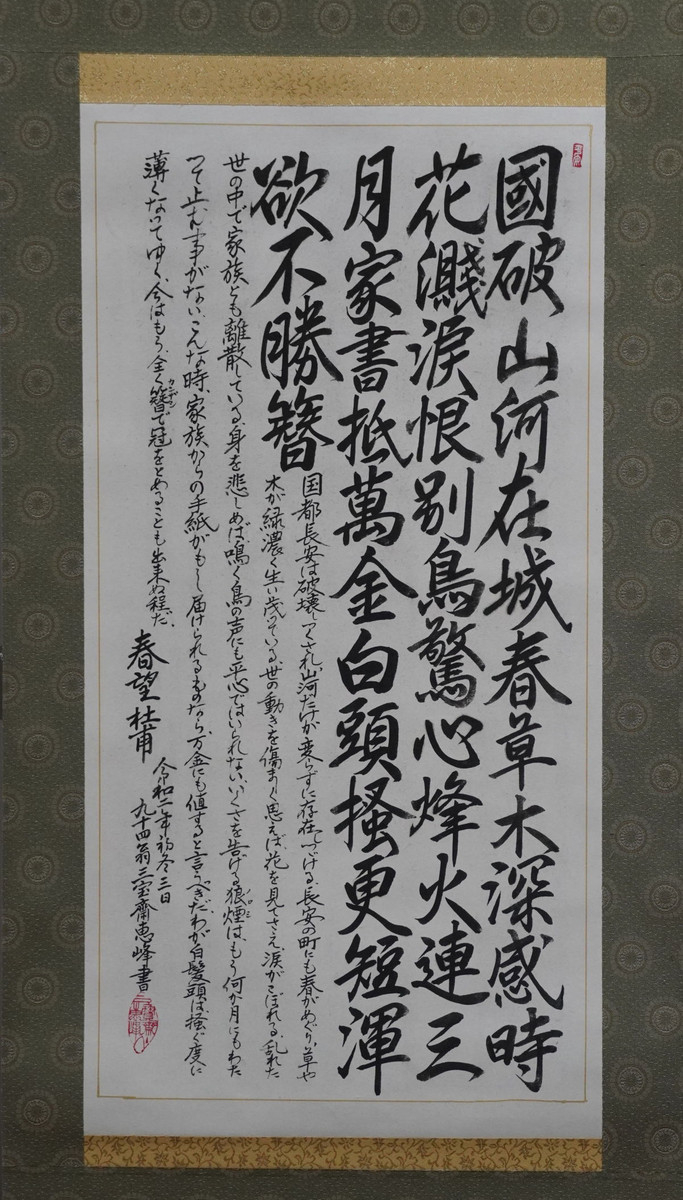 國破山河在城春草木深感時
花濺淚恨別鳥驚心烽火連三
月家書抵萬金白頭搔更短渾
欲不勝簪
国都長安は破壊しつくされ、山河だけが変らずに存在しつづける、長安の町にも春がめぐり、草や
木が緑濃く生い茂っている。世の動きを傷ましく思えば、花を見てさえ、涙がこぼれる、乱れた
世の中で家族とも離散している身を悲しめば鳴く鳥の声にも平心ではいられない、いくさを告げる狼煙は、もう何か月にもわた
って止む事がない、こんな時、家族からの手紙がもし届けられるものなら、万金にも値すると言うべきだ、わが白髪頭は、掻く度に
薄くなってゆく、今はもう、全く簪で冠をとめることも出来ぬ程だ、
カンザシ
ノロシ
春望 杜甫
令和二年初冬三日
九十四翁三宝齋恵峰書